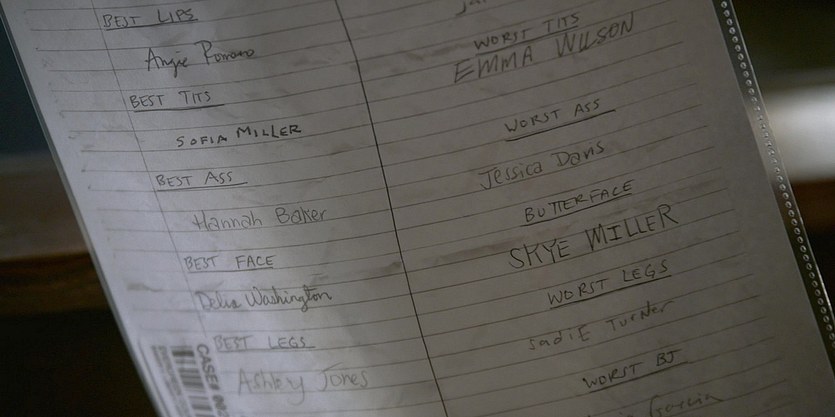 BEST LIPS
Angie Romano
BEST TITS
SOFIA MILLER
BEST ASS
Hannah Baker
BEST FACE
Delia Washington
BEST LEGS
Ashley Jones
CASE#
WORST TITS
EMMA WILSON
WORST ASS
Jessica Davis
BUTTERFACE
SKYE MILLER
WORST LEGS
SadiE Turner
WORST BJ
Garcia